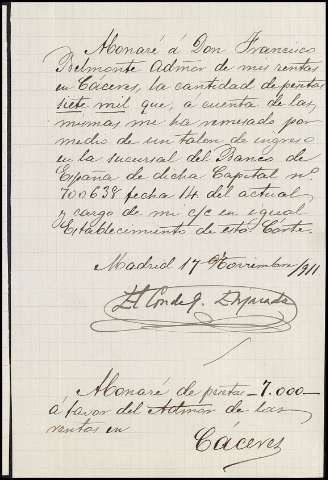 Abonaré á Don Francisco
Belmonte Admor de mis rentas
en Cáceres, la cantidad de pesetas
siete mil que, a cuenta de las
mismas me ha remesado por
medio de un talon de ingreso
en la sucursal del Banco de
España de dicha Capital nº
700638 fecha 14 del actual,
y cargo de mi c/c en igual
Establecimiento de esta Corte.
Madrid 17 Noviembre/911
El Conde
Abonaré de pesetas -7.000-
á favor del Admor de las
rentas en
Cáceres